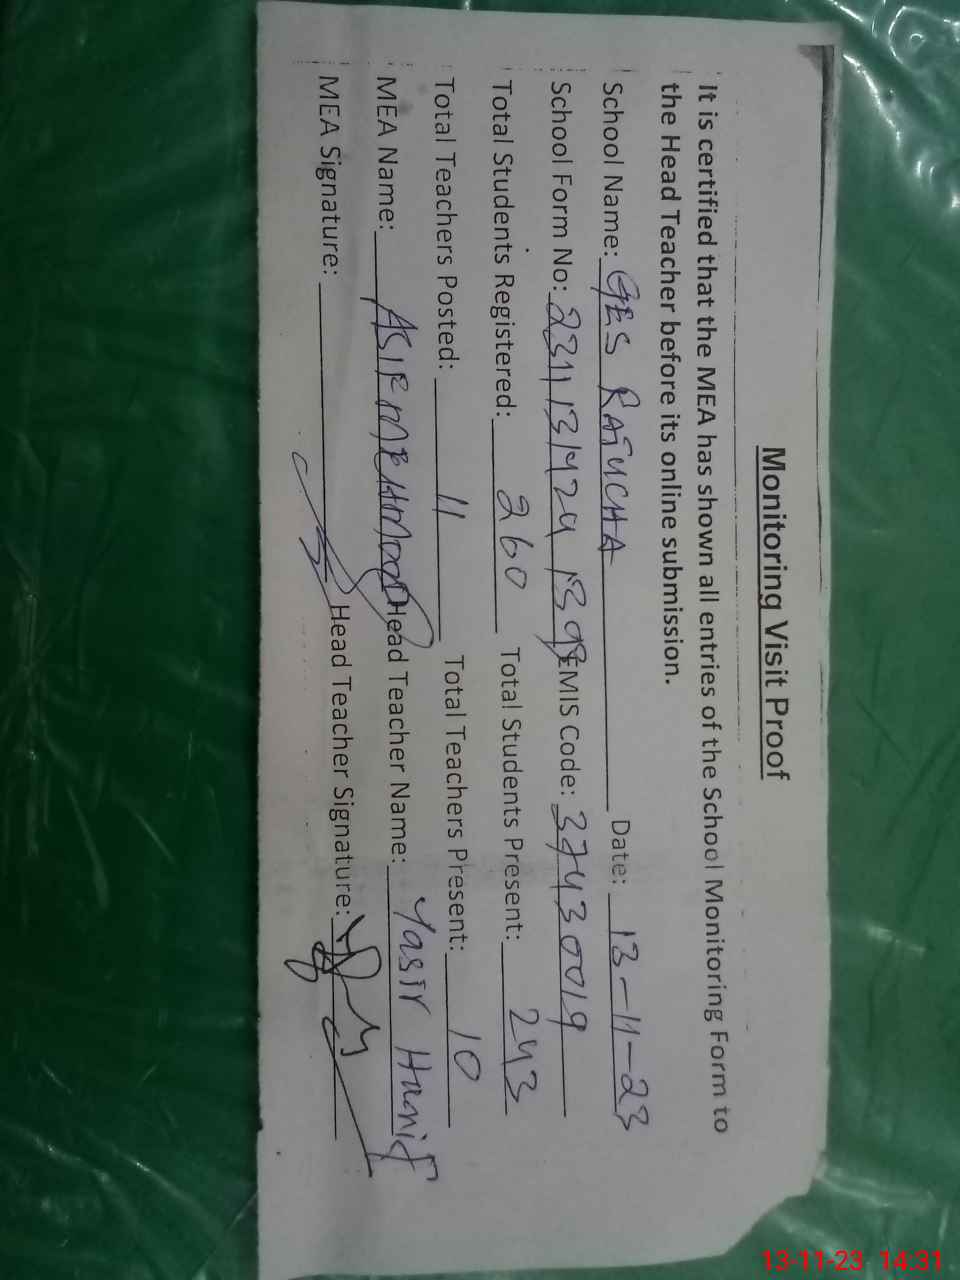 Monitoring Visit Proof
It is certified that the MEA has shown all entries of the School Monitoring Form to
the Head Teacher before its online submission.
School Name: GES RATUCHA Date: 13-11-23
School Form No: EMIS Code: 37430019
Total Students Registered: 260 Total Students Present: 243
Total Teachers Posted: 11 Total Teachers Present: 10
MEA Name: ASIF MEHMOOD Head Teacher Name: Yasir Hanif
MEA Signature: Head Teacher Signature:
13-11-23 14:31